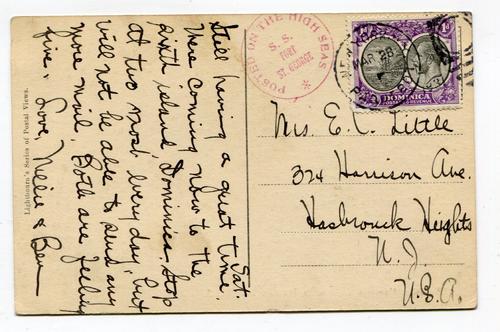 Sat.
Still having a great time.
Were coming now to the
sixth island, Dominica. Stop
at two most every day, but
will not be able to send any
more mail. Both are feeling
fine. Love, & Ben
Lightbourn's Series of Postal Views.
POSTED ON THE HIGH SEAS
S. S.
FORT
ST. GEORGE
NEW YORK
MAR 28
DOMINICA
POSTAGE & REVENUE
1d
Mrs. E. C. Little
324 Harrison Ave.
Hasbrouck Heights
N. J.
U.S.A.